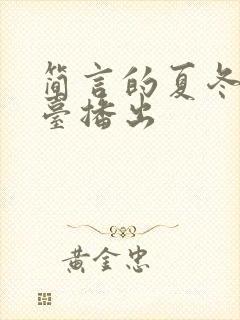 简言的夏冬
臺播出
黄金忠